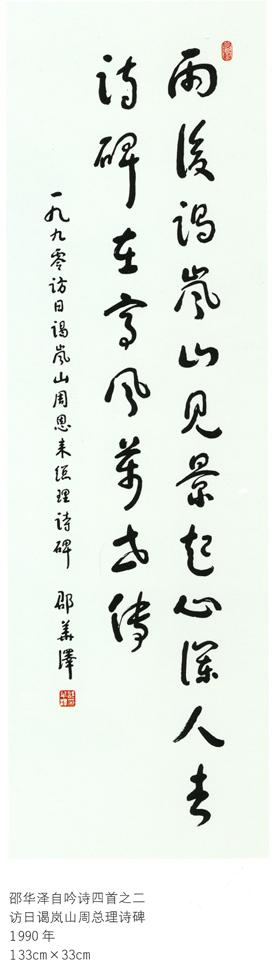 雨後謁嵐山見景起心瀾人去
詩碑在高風萬世傳
一九九零訪日謁嵐山周恩来總理詩碑 邵華澤
邵华泽自吟诗四首之二
访日谒岚山周总理诗碑
1990年
133cm×33cm